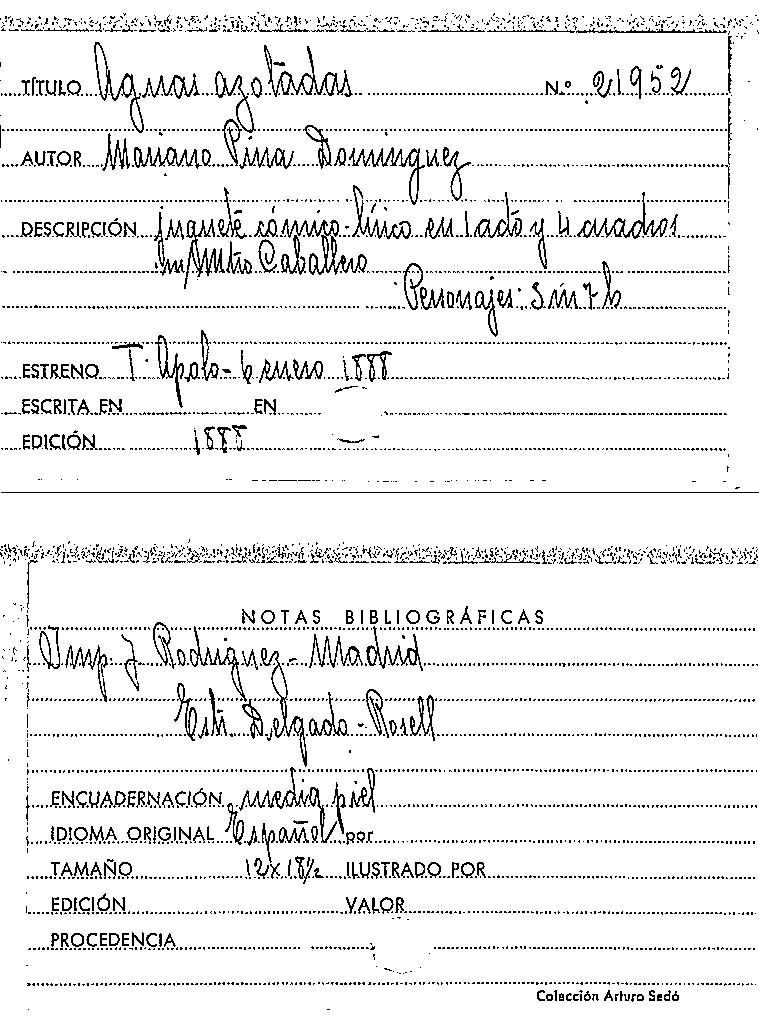 TÍTULO Aguas azotadas N.º 21952
AUTOR Mariano Pina Dominguez
DESCRIPCIÓN juguete cómico-lírico en 1 acto y 4 cuadros
Caballero
Personajes: 3 m 7 h
ESTRENO T. Apolo - 6 enero 1888
ESCRITA EN EN
EDICIÓN 1888
NOTAS BIBLIOGRÁFICAS
Imp J Rodriguez - Madrid
Delgado - Rosell
ENCUADERNACIÓN media piel
IDIOMA ORIGINAL Español por
TAMAÑO 12 x 18½ ILUSTRADO POR
EDICIÓN VALOR
PROCEDENCIA
Colección Arturo Sedó